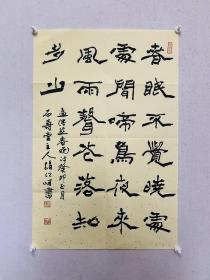 春眠不覺曉處
處聞啼鳥夜來
風雨聲花落知
多少
孟浩然春曉詩癸卯正月
主人 書